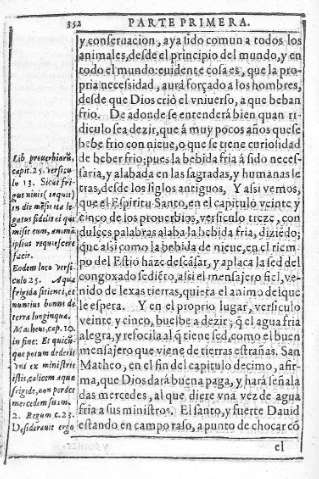 352
PARTE PRIMERA.
y conseruacion, aya sido comun a todos los
animales, desde el principio del mundo, y en
todo el mundo: euidente cosa es, que la pro-
pria necessidad, aurá forçado a los hombres,
desde que Dios criò el vniuerso, a que beban
frio. De adonde se entenderá bien quan ri-
diculo sea dezir, que á muy pocos años que se
bebe frio con nieue, o que se tiene curiosidad
de beber frio; pues la bebida fria á sido neces-
saria, y alabada en las sagradas, y humanas le
tras, desde los siglos antiguos. Y assi vemos,
que el Espiritu Santo, en el capitulo veinte y
cinco de los prouerbios, versiculo treze, con
dulces palabras alaba la bebida fria, diziẽdo;
que assi como la bebida de nieue, en el tiem
po del Estio haze descãsar, y aplaca la sed del
congoxado sediẽto, assi el mensajero fiel, ve-
nido de lexas tierras, quieta el animo del que
le espera. Y en el proprio lugar, versiculo
veinte y cinco, buelbe a dezir; q̃ el agua fria
alegra, y refocila al q̃ tiene sed, como el buen
mensajero que viene de tierras estrañas. San
Matheo, en el fin del capitulo decimo, afir-
ma, que Dios dará buena paga, y hará señala
das mercedes, al que diere vna vez de agua
fria a sus ministros. El santo, y fuerte Dauid
estando en campo raso, a punto de chocar cõ
el
Lib. prouerbiorũ,
capit. 25. versicu
lo 13. Sicut fri
gus niuis (inquit)
in die messis ita le
gatus fidelis ei qui
misit eum, animã
ipsius requiescere
facit.
Eodem loco versi
culo 25. Aqua
frigida sitienti, et
nuntius bonus de
terra longinqua.
Matheus, cap. 10.
in fine: Et quicũ
que potum dederit
vni ex ministris
istis, calicem aquæ
frigidæ, non perdet
mercedem suam.
2. Regum c. 23.
Desiderauit ergo